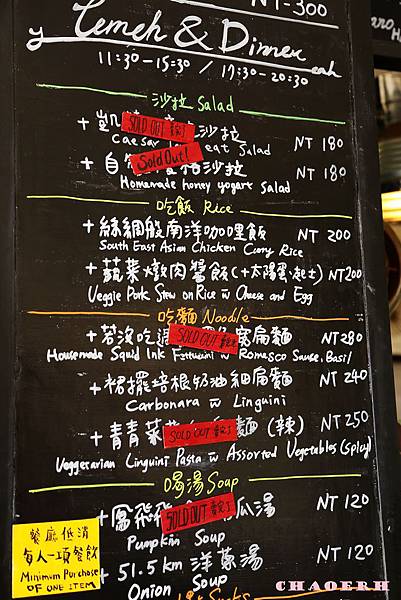 NT-300
Lemeh & Dinner
11:30-15:30 / 17:30-20:30
沙拉 Salad
+ 凱 沙拉 NT 180
SOLD OUT 賣完了
Caesar eat Salad
+ 自 沙拉 NT 180
Sold Out!
Homemade honey yogurt Salad
吃飯 Rice
+ 絲綢般南洋咖哩飯 NT 200
South East Asian Chicken Curry Rice
+ 蔬菜燉肉醬飯(+太陽蛋、起士) NT200
Veggie Pork Stew on Rice w Cheese and Egg
吃麵 Noodle
+ 若沒吃 寬扁麵 NT280
SOLD OUT 賣完了
Housemade Squid Ink Fettucini w Romesco Sauce, Basil
+ 裙擺培根奶油細扁麵 NT 240
Carbonara w Linguini
+ 青青菜 麵 (辣) NT 250
SOLD OUT 賣完了
Veggetarian Linguini Pasta w Assorted Vegetables (Spicy)
喝湯 Soup
+ 鳳飛飛 瓜湯 NT 120
SOLD OUT 賣完了
Pumpkin Soup
+ 51.5 km 洋蔥湯 NT 120
Onion Soup
餐廳低消
每人一項餐飲
Minimum Purchase
OF ONE ITEM
CHAOERH